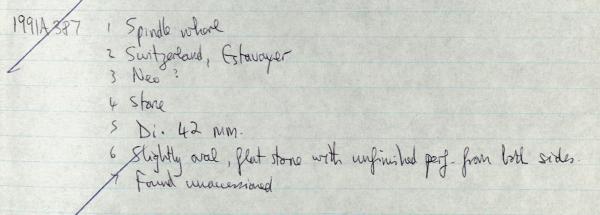 1991A387 1 Spindle whorl
2 Switzerland, Estavayer
3 Neo ?
4 Stone
5 Di. 42 mm.
6 Slightly oval, flat stone with unfinished perf. from both sides.
7 Found unaccessioned